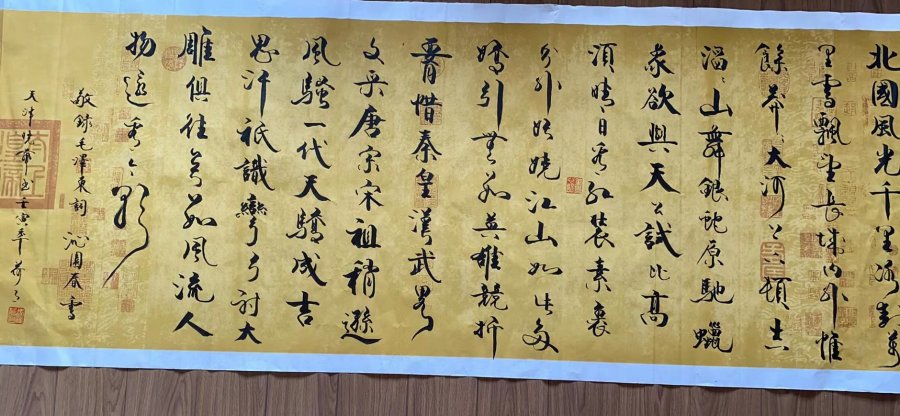 北國風光千里冰封萬
里雪飄望長城內外惟
餘莽〻大河上下頓失
滔〻山舞銀蛇原馳蠟
象欲與天公試比高
須晴日看紅裝素裹
分外妖嬈江山如此多
嬌引無數英雄競折
腰惜秦皇漢武略
文采唐宗宋祖稍遜
風騷一代天驕成吉
思汗祇識彎弓射大
雕俱往矣數風流人
物還看今朝
敬錄毛澤東詞 沁園春雪
天津 書壬寅年 月